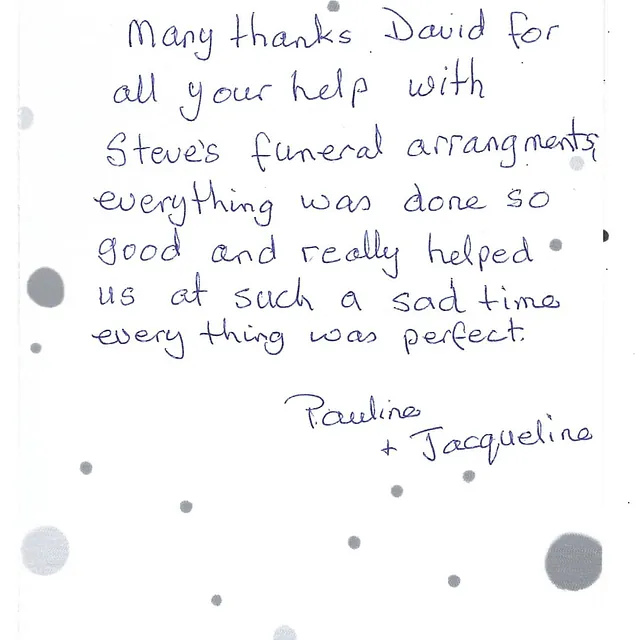 Many thanks David for
all your help with
Steve's funeral arrangments,
everything was done so
good and really helped
us at such a sad time
every thing was perfect.
Pauline
+ Jacqueline